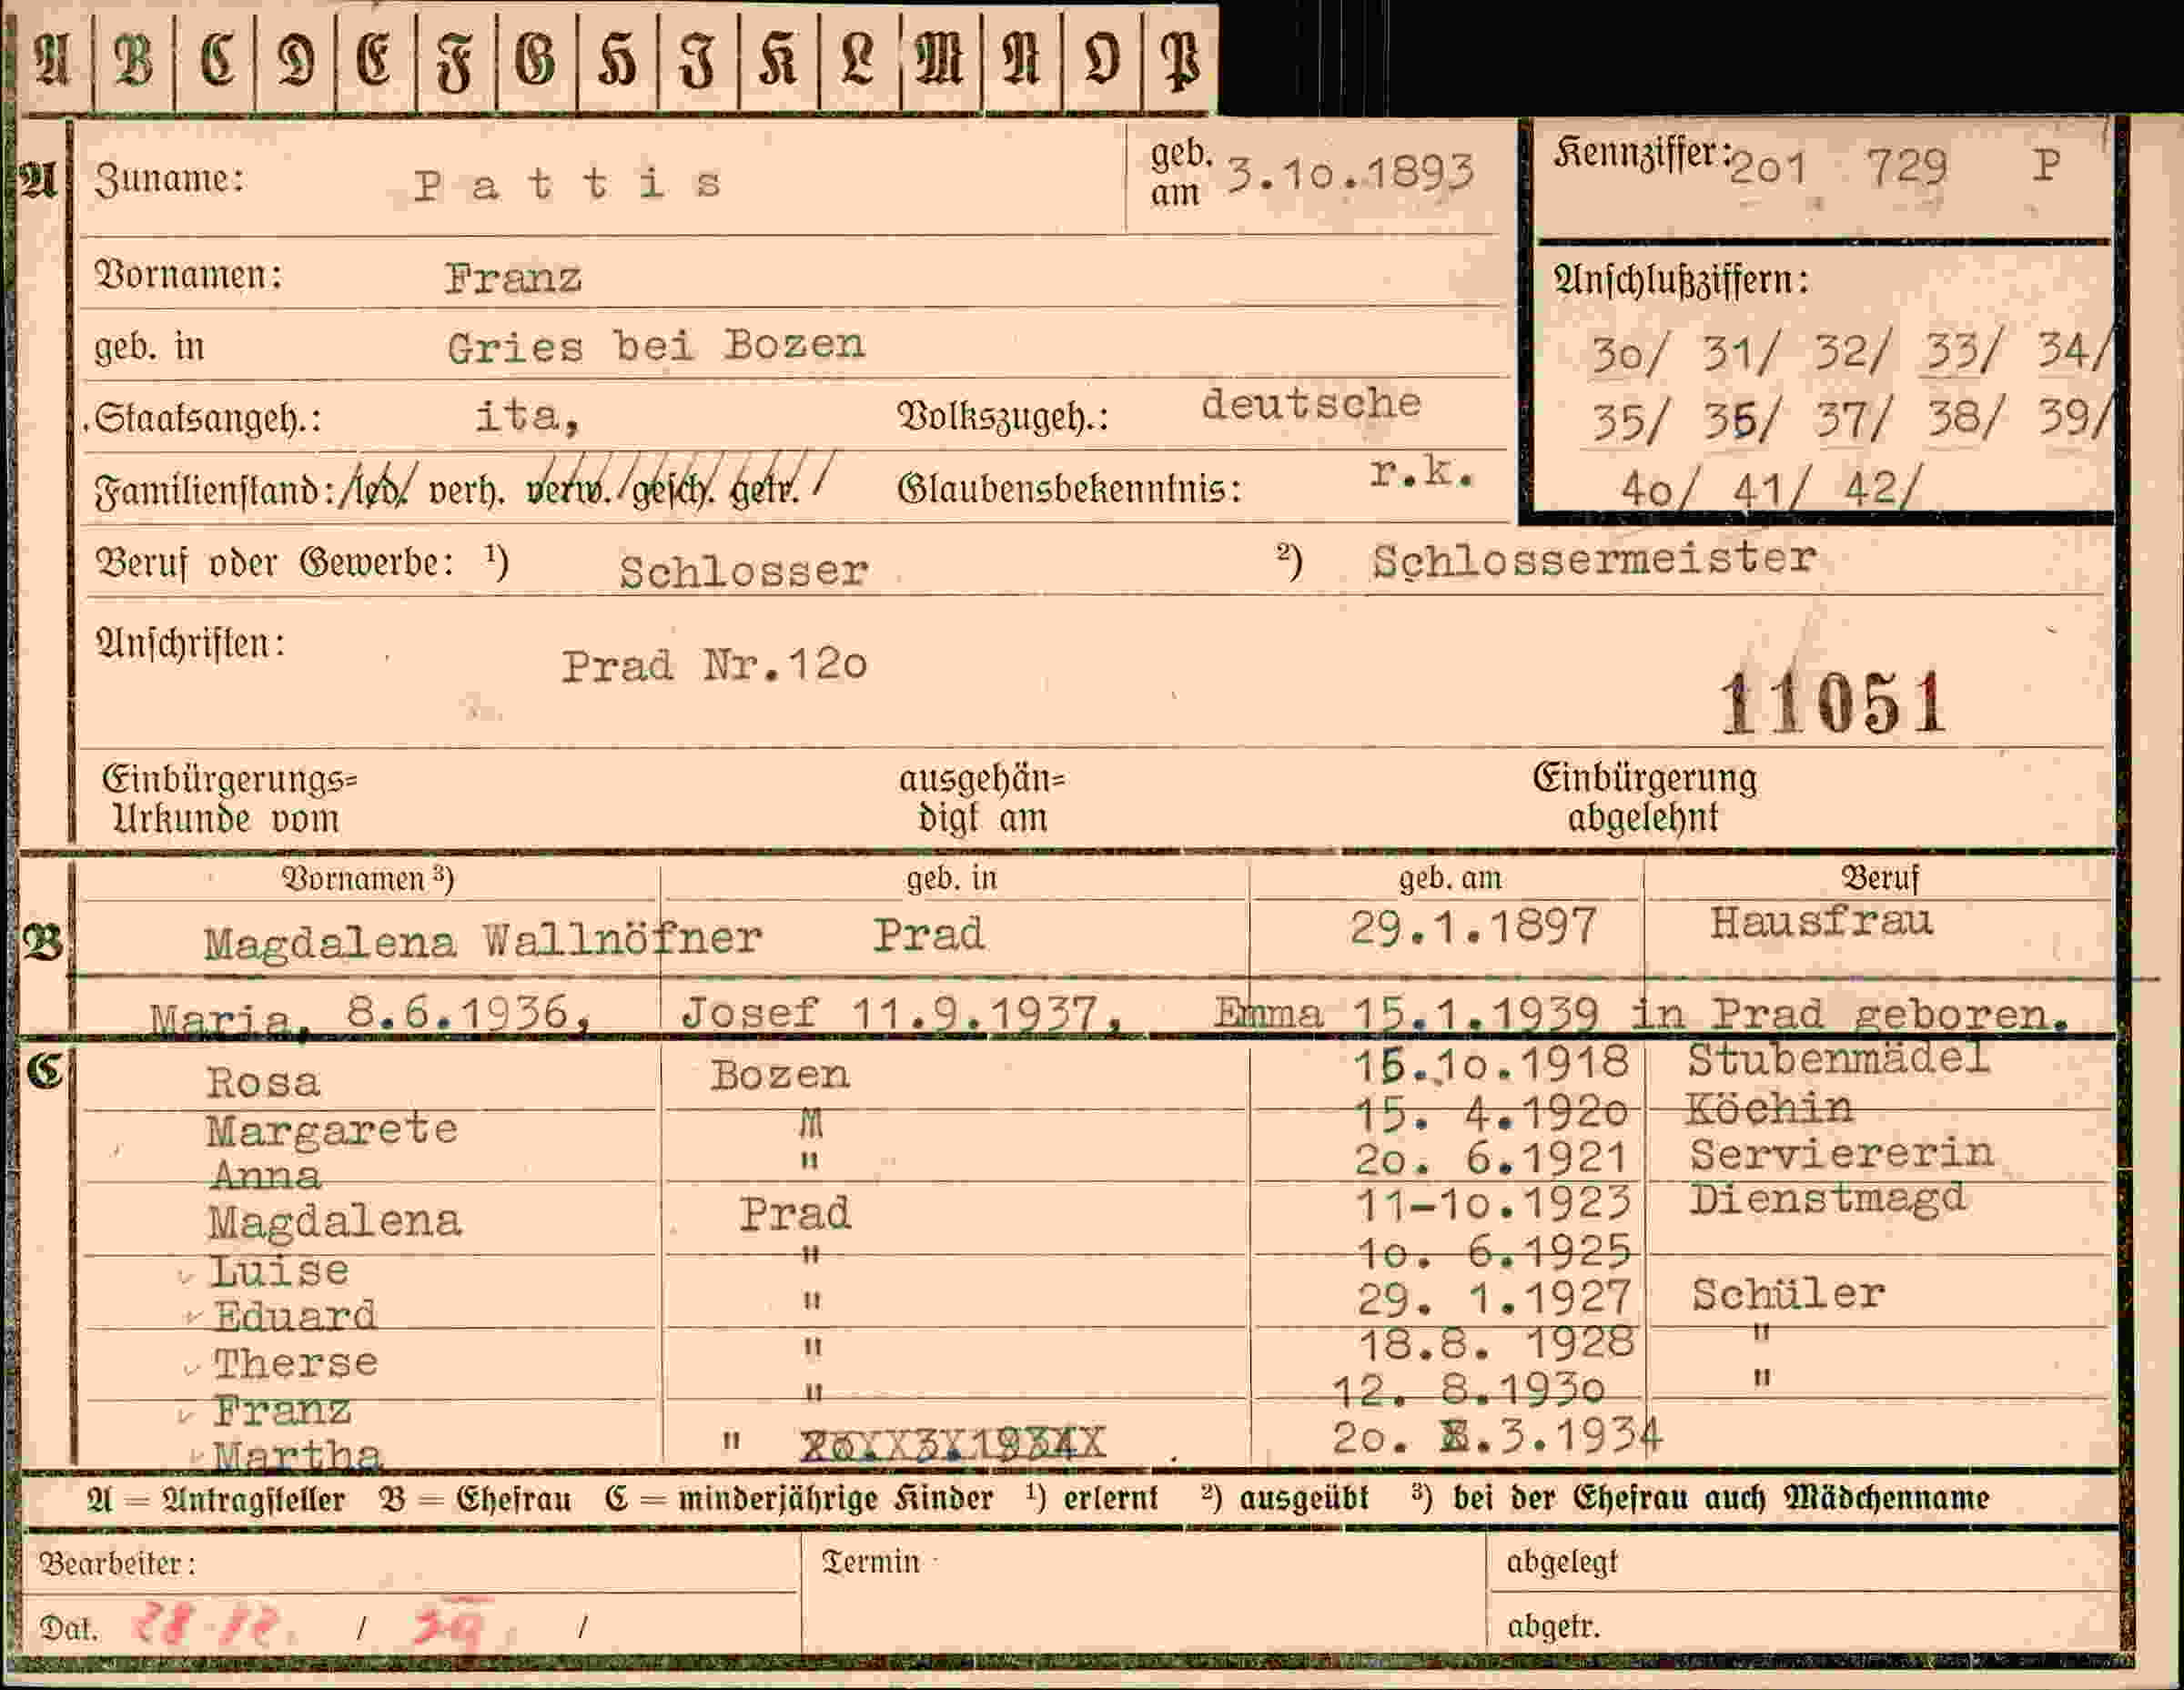 A B C D E F G H I K L M N O P
A Zuname: Pattis geb. am 3.10.1893 Kennziffer: 201 729 P
Vornamen: Franz
Anschlußziffern:
geb. in Gries bei Bozen
30/ 31/ 32/ 33/ 34/
Staatsangeh.: ita, Volkszugeh.: deutsche
35/ 36/ 37/ 38/ 39/
Familienstand: led. verh. verw. gesch. getr. Glaubensbekenntnis: r.k.
40/ 41/ 42/
Beruf oder Gewerbe: ¹) Schlosser ²) Schlossermeister
Anschriften: Prad Nr.120
11051
Einbürgerungs= ausgehän= Einbürgerung
Urkunde vom digt am abgelehnt
Vornamen ³) geb. in geb. am Beruf
B Magdalena Wallnöfner Prad 29.1.1897 Hausfrau
Maria, 8.6.1936, Josef 11.9.1937, Emma 15.1.1939 in Prad geboren.
C Rosa Bozen 16.10.1918 Stubenmädel
Margarete " 15. 4.1920 Köchin
Anna " 20. 6.1921 Serviererin
Magdalena Prad 11-10.1923 Dienstmagd
Luise " 10. 6.1925
Eduard " 29. 1.1927 Schüler
Therse " 18.8. 1928 "
Franz " 12. 8.1930 "
Martha " 20. 3.1934
A = Antragsteller B = Ehefrau C = minderjährige Kinder ¹) erlernt ²) ausgeübt ³) bei der Ehefrau auch Mädchenname
Bearbeiter: Termin abgelegt
Dat. 28.12. / 39 / abgetr.